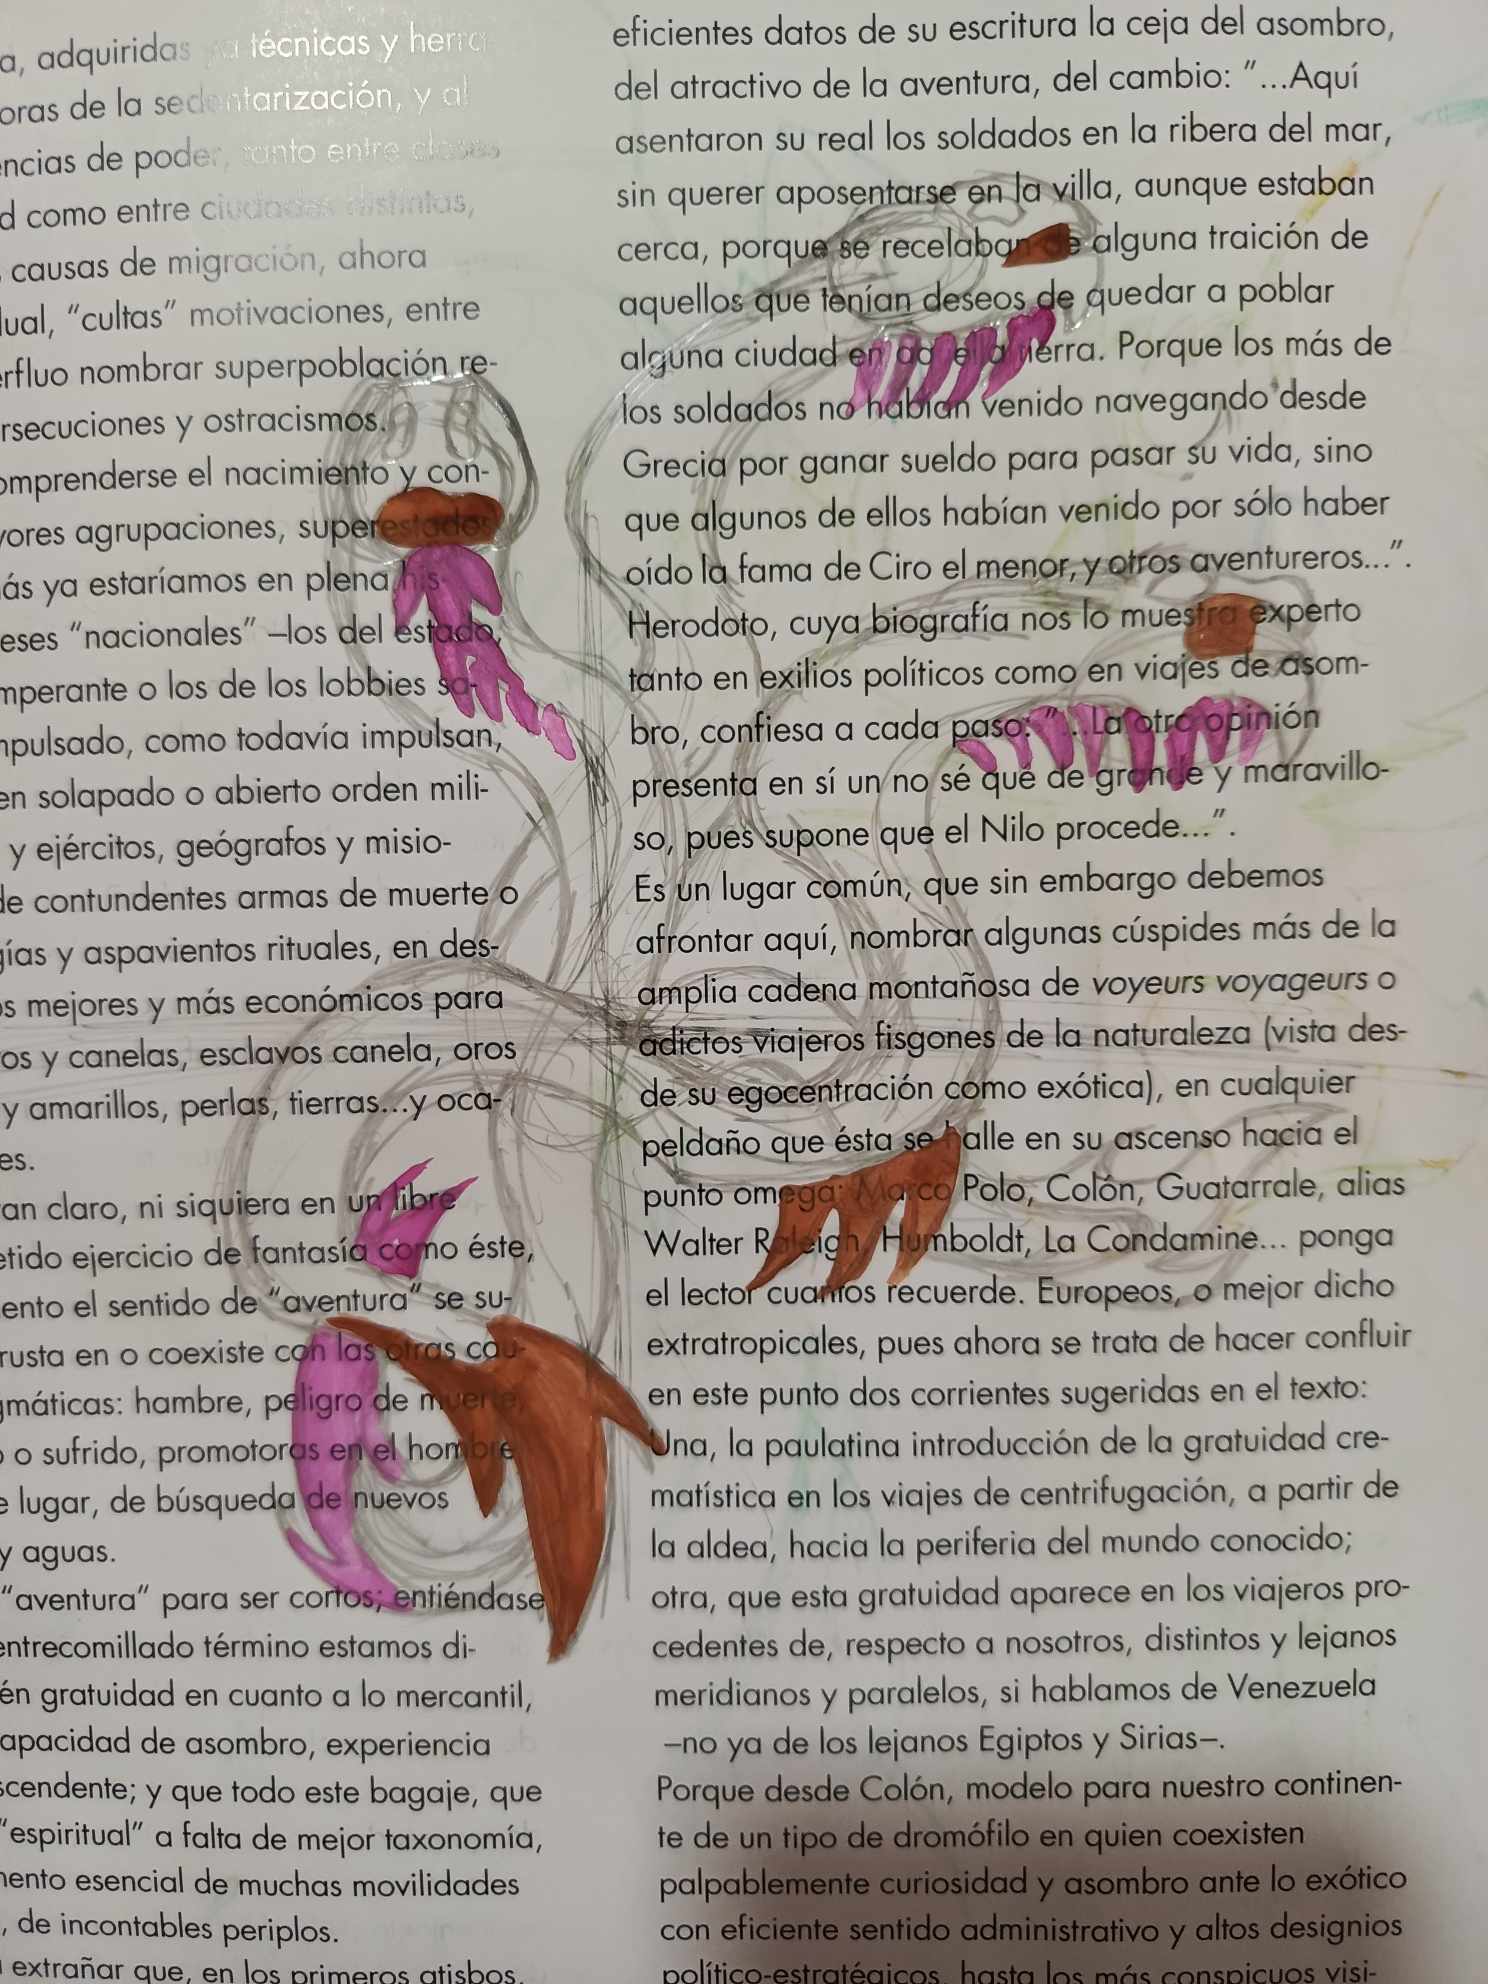 a, adquiridas ya técnicas y herra-
oras de la sedentarización, y al
encias de poder, tanto entre clases
d como entre ciudades distintas,
, causas de migración, ahora
dual, “cultas” motivaciones, entre
erfluo nombrar superpoblación re-
ersecuciones y ostracismos.
omprenderse el nacimiento y con-
yores agrupaciones, superestados
más ya estaríamos en plena his-
eses “nacionales” –los del estado,
mperante o los de los lobbies sa-
mpulsado, como todavía impulsan,
en solapado o abierto orden mili-
y ejércitos, geógrafos y misio-
de contundentes armas de muerte o
gías y aspavientos rituales, en des-
os mejores y más económicos para
ros y canelas, esclavos canela, oros
y amarillos, perlas, tierras...y oca-
es.
an claro, ni siquiera en un libre
etido ejercicio de fantasía como éste,
ento el sentido de “aventura” se su-
rusta en o coexiste con las otras cau-
gmáticas: hambre, peligro de muerte,
o o sufrido, promotoras en el hombre
e lugar, de búsqueda de nuevos
y aguas.
“aventura” para ser cortos; entiéndase
entrecomillado término estamos di-
én gratuidad en cuanto a lo mercantil,
apacidad de asombro, experiencia
scendente; y que todo este bagaje, que
“espiritual” a falta de mejor taxonomía,
mento esencial de muchas movilidades
, de incontables periplos.
extrañar que, en los primeros atisbos,
eficientes datos de su escritura la ceja del asombro,
del atractivo de la aventura, del cambio: “...Aquí
asentaron su real los soldados en la ribera del mar,
sin querer aposentarse en la villa, aunque estaban
cerca, porque se recelaban de alguna traición de
aquellos que tenían deseos de quedar a poblar
alguna ciudad en aquella tierra. Porque los más de
los soldados no habían venido navegando desde
Grecia por ganar sueldo para pasar su vida, sino
que algunos de ellos habían venido por sólo haber
oído la fama de Ciro el menor, y otros aventureros...”.
Herodoto, cuya biografía nos lo muestra experto
tanto en exilios políticos como en viajes de asom-
bro, confiesa a cada paso: “...La otra opinión
presenta en sí un no sé qué de grande y maravillo-
so, pues supone que el Nilo procede...”.
Es un lugar común, que sin embargo debemos
afrontar aquí, nombrar algunas cúspides más de la
amplia cadena montañosa de voyeurs voyageurs o
adictos viajeros fisgones de la naturaleza (vista des-
de su egocentración como exótica), en cualquier
peldaño que ésta se halle en su ascenso hacia el
punto omega: Marco Polo, Colón, Guatarrale, alias
Walter Raleigh, Humboldt, La Condamine... ponga
el lector cuantos recuerde. Europeos, o mejor dicho
extratropicales, pues ahora se trata de hacer confluir
en este punto dos corrientes sugeridas en el texto:
Una, la paulatina introducción de la gratuidad cre-
matística en los viajes de centrifugación, a partir de
la aldea, hacia la periferia del mundo conocido;
otra, que esta gratuidad aparece en los viajeros pro-
cedentes de, respecto a nosotros, distintos y lejanos
meridianos y paralelos, si hablamos de Venezuela
–no ya de los lejanos Egiptos y Sirias–.
Porque desde Colón, modelo para nuestro continen-
te de un tipo de dromófilo en quien coexisten
palpablemente curiosidad y asombro ante lo exótico
con eficiente sentido administrativo y altos designios
político-estratégicos, hasta los más conspicuos visi-